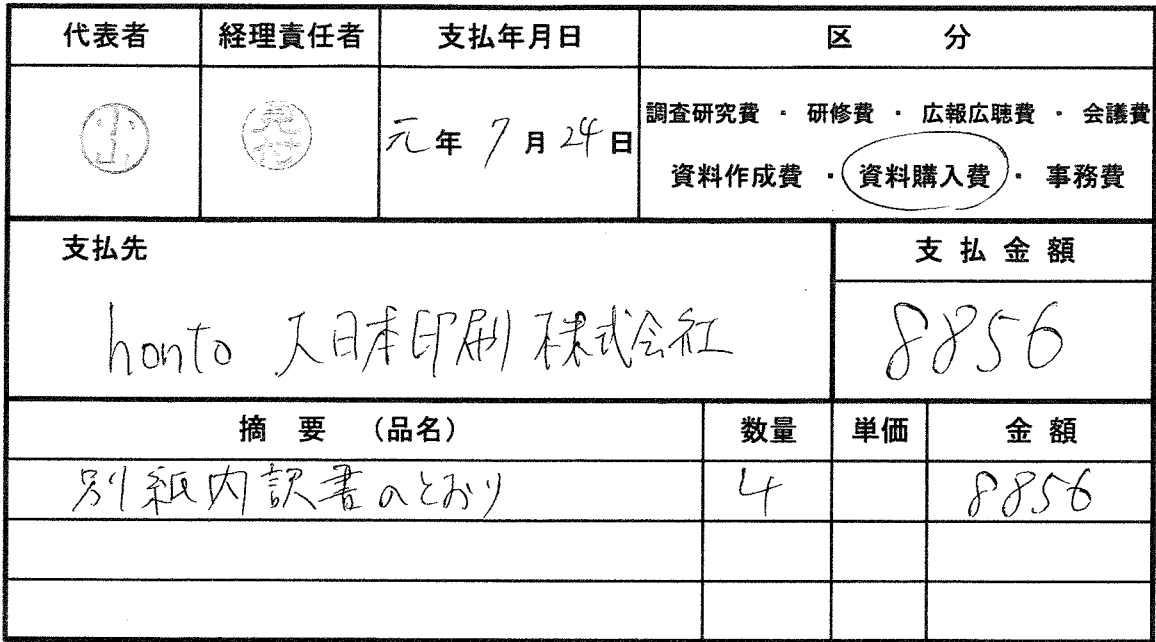 代表者 経理責任者 支払年月日 区 分
元年 7月 24日
調査研究費 ・ 研修費 ・ 広報広聴費 ・ 会議費
資料作成費 ・ 資料購入費 ・ 事務費
支払先 支払金額
honto 大日本印刷株式会社 8856
摘 要 (品名) 数量 単価 金額
別紙内訳書のとおり 4 8856